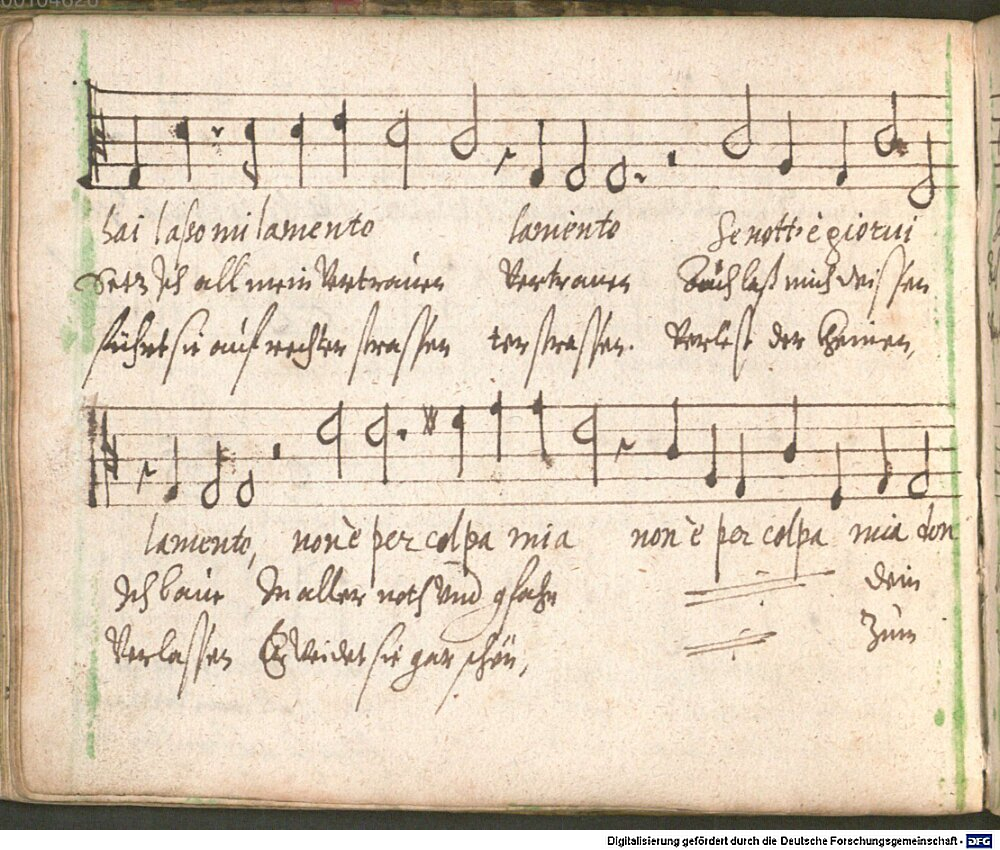 00104626
hai lasso mi lamento lamento Se nott' e giorni
Setz Ich all mein Vertrauen Vertrauen Auch laß mich wissen
führt sie auf rechter strassen ter strassen. Verlest der
lamento, non è per colpa mia non è per colpa mia don
Ich baue In aller noth Und gfahr dein
Verlassen Er Weidet sie gar schön, Zum
Digitalisierung gefördert durch die Deutsche Forschungsgemeinschaft - DFG